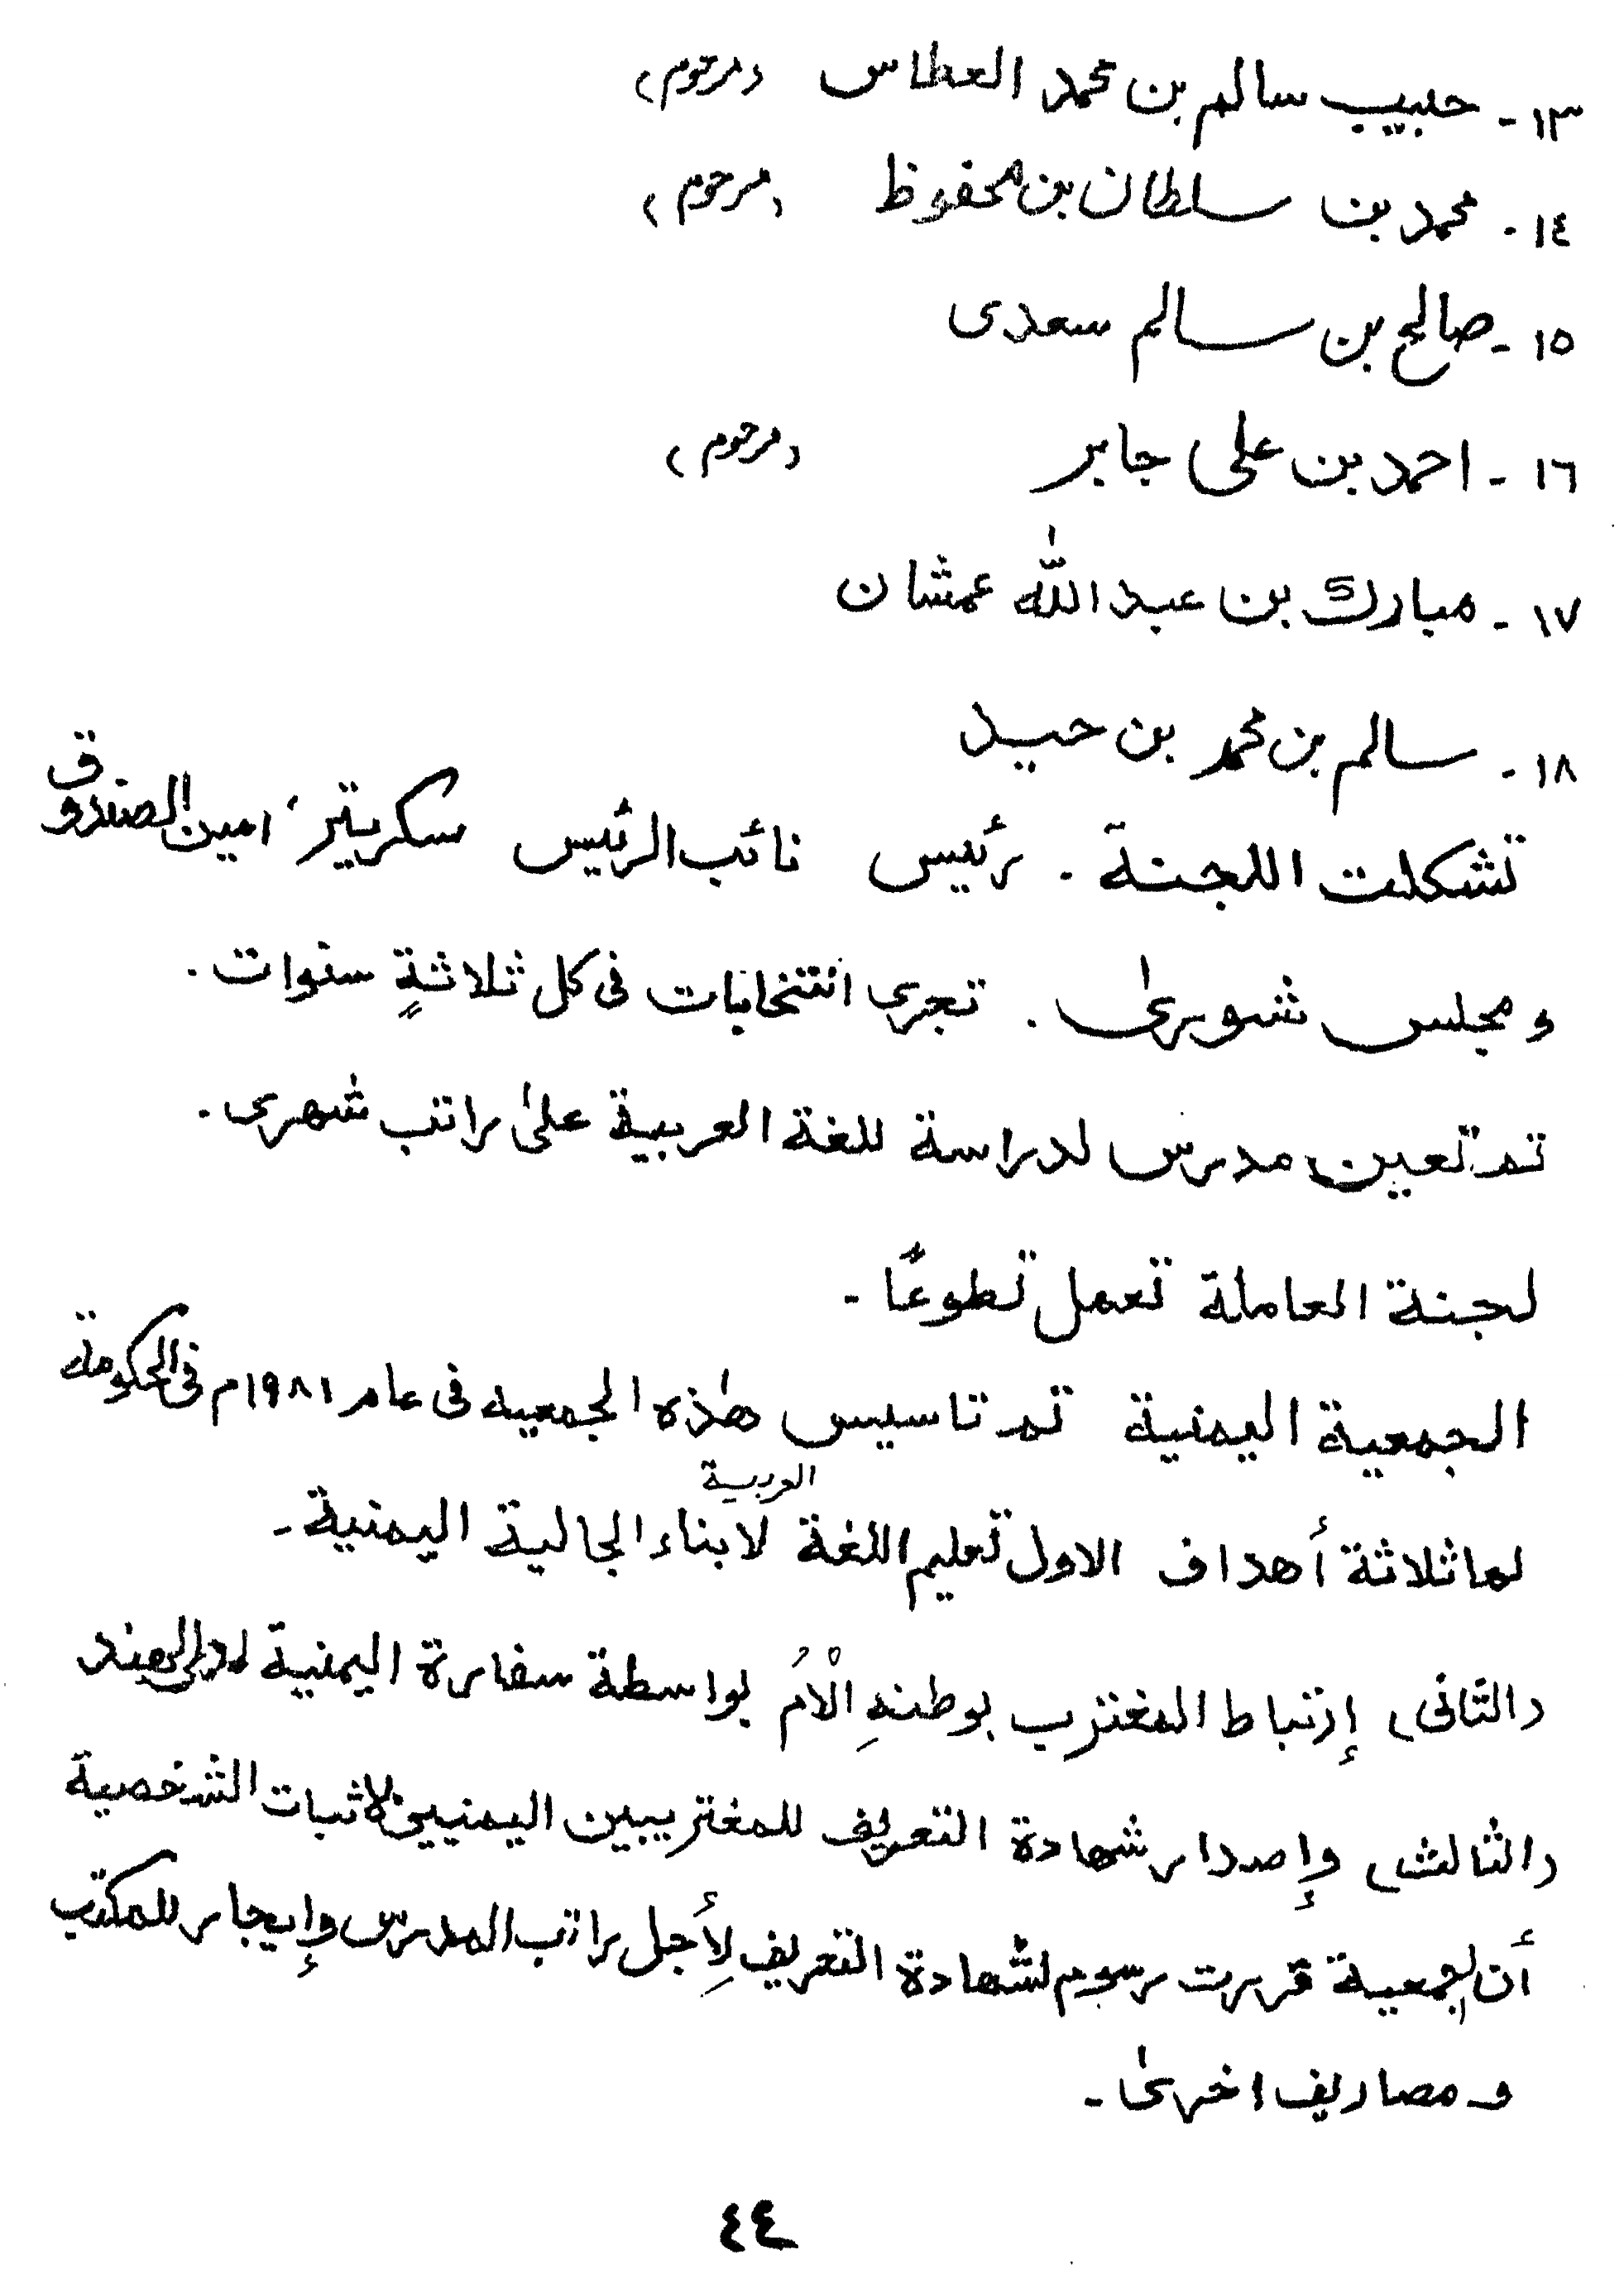 ١٣- حبيب سالم بن محمد العطاس (مرحوم)
١٤- محمد بن سلطان بن محفوظ (مرحوم)
١٥- صالح بن سالم سعدى
١٦- احمد بن على جابر (مرحوم)
١٧- مبارك بن عبد الله عمشان
١٨- سالم بن محمد بن حيد
تشكلت اللجنة . رئيس نائب الرئيس سكريتير، امين الصندوق
و مجلس شورىٰ . تجرى انتخابات فى كل ثلاثةٍ سنوات .
تم تعين مدرس لدراسة للغة العربية علىٰ راتب شهرى .
لجنة العاملة تعمل تطوعًا -
الجمعية اليمنية تم تاسيس هٰذه الجمعيه فى عام ١٩٨١م فى الحكومة
لها ثلاثة أهداف الاول تعليم اللغة العربية لابناء الجالية اليمنية -
(الثانى) إرتباط المغترب بوطنهِ الْامُ بواسطة سفارة اليمنية لدلى الهند
(الثالث) وإصدار شهادة التعريف للمغتريبين اليمنيين لاثبات الشخصية
أن الجمعية قررت رسوم لشهادة التعريف لِأجل راتب المدرس وإيجار للمكتب
و مصاريف اخرىٰ -
٤٤